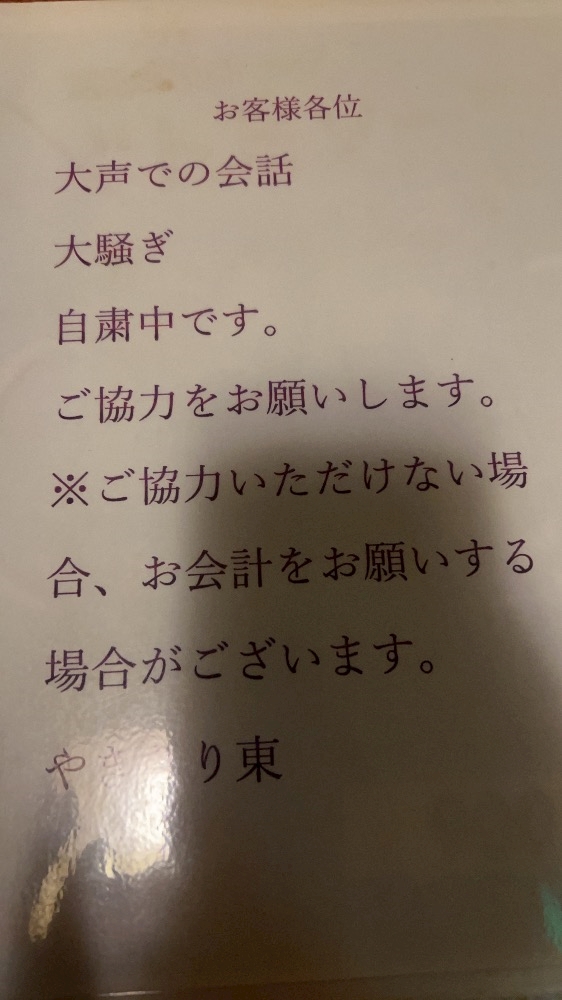 お客様各位
大声での会話
大騒ぎ
自粛中です。
ご協力をお願いします。
※ご協力いただけない場
合、お会計をお願いする
場合がございます。
やき り東